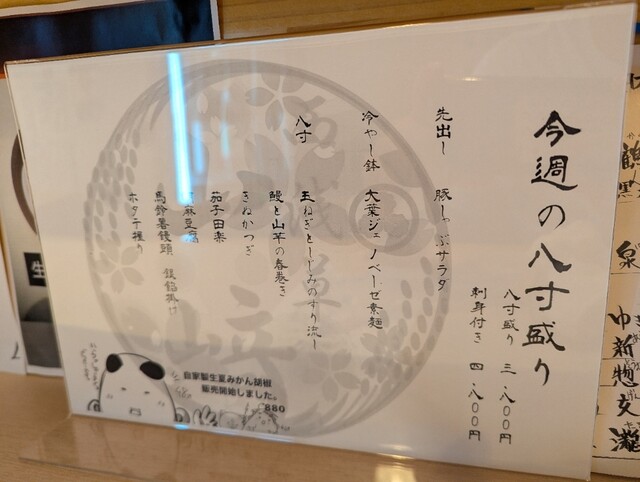 今週の八寸盛り
八寸盛り 三、八〇〇円
刺身付き 四、八〇〇円
先出し 豚しゃぶサラダ
冷やし鉢 大葉ジェノベーゼ素麺
八寸 玉ねぎとしじみのすり流し
鰻と山芋の春巻き
きぬかつぎ
茄子田楽
麻豆腐
馬鈴薯饅頭 銀餡掛け
ホタテ
自家製生夏みかん胡椒
販売開始しました。
880
鶴
黒
泉
中新惣文灘